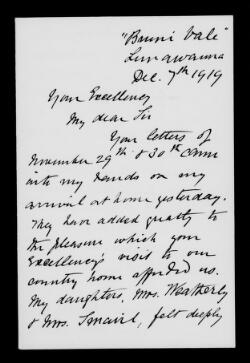 "Bruni Vale"
Lunawanna
Dec. 7th 1919
Your Excellency
My dear Sir
Your letters of
November 29th & 30th came
into my hands on my
arrival at home yesterday.
They have added greatly to
the pleasure which your
Excellency's visit to our
country home afforded us.
My daughters, Mrs. Weatherly
& Mrs. felt deeply